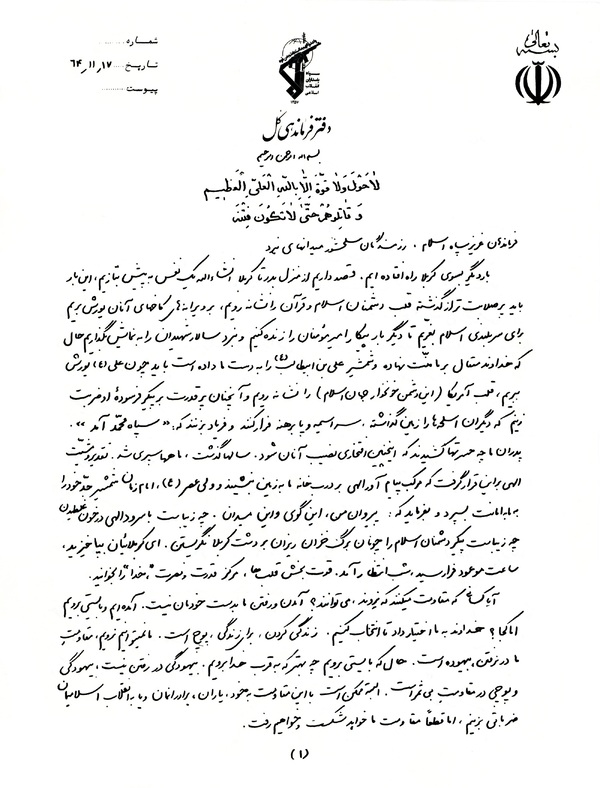 بسمه تعالی
شماره
تاریخ ۶۴٫۱۱٫۱۷
پیوست
دفتر فرماندهی کل
بسم الله الرحمن الرحیم
لاحَولَ وَلا قوَّةَ اِلّا بِاللّهِ العَلیِّ العَظیم
وَ قاتِلوهُمْ حَتّیٰ لا تَکونَ فِتنَة
فرماندهان عزیز سپاه اسلام، رزمندگان سلحشور میدانهای نبرد
بار دیگر بسوی کربلا راه افتاده ایم. قصد داریم از منزل بدر تا کربلا انشاءالله یک نفس به پیش بتازیم، این بار
باید پرصلابت تر از گذشته قلب دشمنان اسلام و قرآن را نشانه رویم، بر ویرانه های کاخهای آنان یورش بریم
برای سربلندی اسلام بغریم تا دیگر بار پیکار امیر مؤمنان را زنده کنیم و نبرد سالار شهیدان را به نمایش بگذاریم حال
که خداوند متعال بر ما منّت نهاده و شمشیر علی بن ابیطالب (ع) را به دست ما داده است باید چون علی (ع) یورش
بریم، قلب آمریکا (این دشمن خونخوار جهان اسلام) را نشانه رویم و آنچنان پرقدرت بر پیکر فرسودۀ او ضربت
زنیم که دیگران اسلحه ها را زمین گذاشته، سراسیمه و پا برهنه فرار کنند و فریاد بزنند که: «سپاه محمّد آمد».
پدران ما چه حسرتها کشیدند که اینچنین افتخاری نصیب آنان شود. سالها گذشت، ماهها سپری شد. تقدیر و مشیّت
الهی بر این قرار گرفت که مرکب پیام آور الهی بر درب خانه ما به زمین بنشیند و ولی عصر (ع)، امام زمان شمشیر جدّ خود را
به ما به امانت بسپرد و بفرماید که: پیروان من، این گوی و این میدان. چه زیباست با سرود الهی در خون غلطیدن
چه زیباست پیکر دشمنان اسلام را چونان برگ خزان ریزان بر دشت کربلا نگریستن. ای کربلائیان بپاخیزید،
ساعت موعود فرا رسید، شب انتظار آمد. قوت بخش قلب ها، مرکز قدرت و نصرت، "خدا" را بخوانید.
آیا کسانی که مقاومت میکنند که نروند، می توانند؟ آمدن و رفتن ما بدست خودمان نیست. آمده ایم و بایستی برویم
اما کجا؟ خداوند به ما اختیار داد تا انتخاب کنیم. زندگی کردن، برای زندگی، پوچ است. ما عمری هم نرویم، مقاومت
ما در نرفتن، بیهوده است. حال که بایستی برویم چه بهتر که به قرب خدا برویم. بیهودگی در رفتن نیست، بیهودگی
و پوچی در مقاومت بی ثمر است. البته ممکن است با این مقاومت به خود، یاران، برادرانمان و یا به انقلاب اسلامیمان
ضرباتی بزنیم، اما قطعاً مقاومت ما خواهد شکست و خواهیم رفت.
(۱)